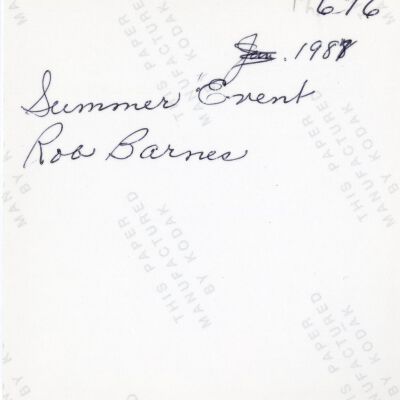 676
Jan. 1987
Summer Event
Rob Barnes
THIS PAPER
MANUFACTURED
BY KODAK
THIS PAPER
MANUFACTURED
BY KODAK
THIS PAPER
MANUFACTURED
BY KODAK
THIS PAPER
MANUFACTURED
BY KODAK